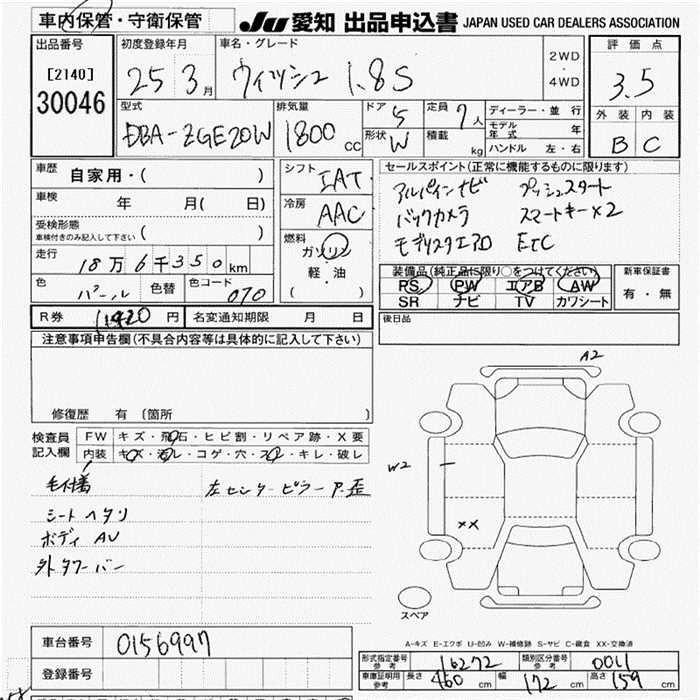 車内保管・守衛保管
JU 愛知 出品申込書 JAPAN USED CAR DEALERS ASSOCIATION
出品番号
[2140]
30046
初度登録年月
25 3月
車名・グレード
ウィッシュ 1.8S
2WD
・
4WD
評価点
3.5
外装 内装
B C
型式
DBA-ZGE20W
排気量
1800cc
ドア 5
形状 W
定員 7人
積載 kg
ディーラー・並行
モデル年式 年
ハンドル 左・右
車歴
自家用・( )
車検 年 月( 日)
受検形態
車検付きのみ記入して下さい ( )
走行
18万6千350km
色 パール 色替 色コード 070
シフト IAT
冷房 AAC
燃料
ガソリン
軽・油
( )
セールスポイント(正常に機能するものに限ります)
アルパインナビ プッシュスタート
バックカメラ スマートキー×2
モデリスタエアロ ETC
装備品(純正品に限り○をつけてください)
PS PW エアB AW
SR ナビ TV カワシート
新車保証書
有・無
R券 11420円 名変通知期限 月 日
後日品
注意事項申告欄(不具合内容等は具体的に記入して下さい)
修復歴 有 [箇所 ]
検査員記入欄
FW キズ・飛石・ヒビ割・リペア跡・X要
内装 キズ・汚レ・コゲ・穴・スレ・キレ・破レ
毛付着 左センターピラーP.歪
シートヘタリ
ボディAU
外タワーバー
A2
W2
XX
スペア
A-キズ E-エクボ U-凹み W-補修跡 S-サビ C-腐食 XX-交換済
車台番号 0156997
登録番号
形式指定番号 参考 16272 類別区分番号 参考 0011
車庫証明用 参考 長さ 460cm 幅 172cm 高さ 159cm